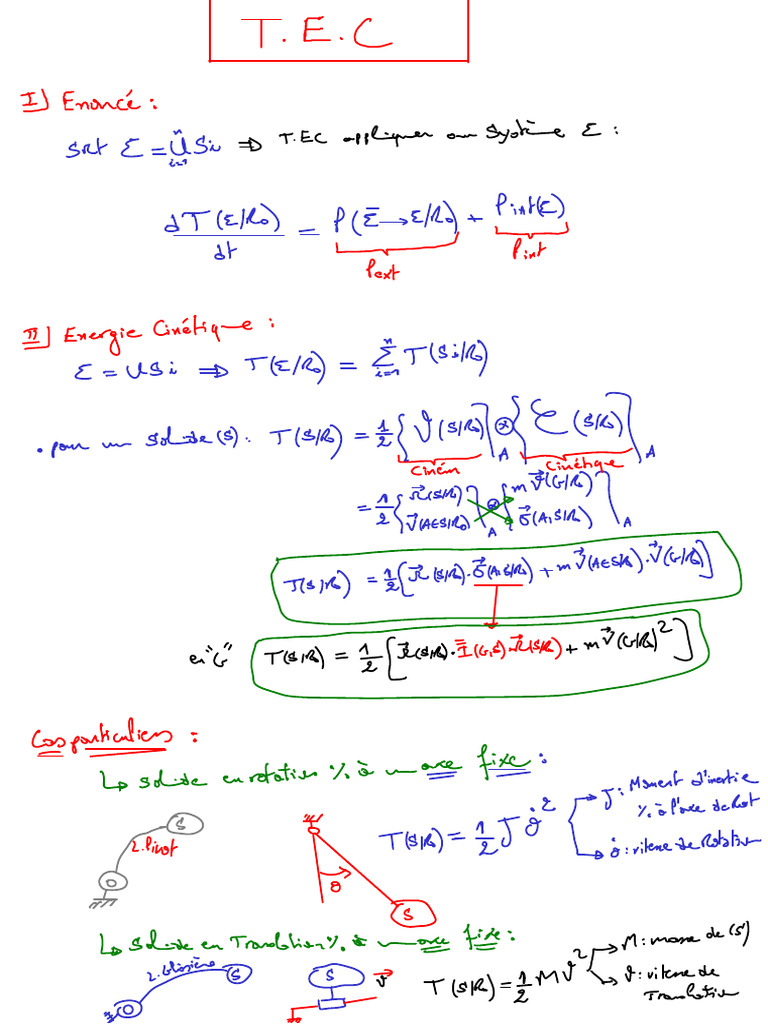 T.E.C
I) Enoncé :
Soit Σ = ⋃ᵢ₌₁ⁿ Si ⇒ T.EC appliquer au Système Σ :
dT(Σ/R₀)/dt = P(Σ̄→Σ/R₀) + Pint(Σ)
Pext Pint
II) Energie Cinétique :
Σ = ∪Si ⇒ T(Σ/R₀) = Σᵢ₌₁ⁿ T(Si/R₀)
• pour un Solide(S) : T(S/R₀) = 1/2 {𝒱(S/R₀)}_A ⊗ {𝒞(S/R₀)}_A
Ciném Cinétique
= 1/2 {Ω⃗(S/R₀) V⃗(A∈S/R₀)}_A ⊗ {m V⃗(G/R₀) σ⃗(A,S/R₀)}_A
T(S/R₀) = 1/2 [Ω⃗(S/R₀)·σ⃗(A,S/R₀) + m V⃗(A∈S/R₀)·V⃗(G/R₀)]
en "G" T(S/R₀) = 1/2 [Ω⃗(S/R₀)·I̿(G,S)·Ω⃗(S/R₀) + m V⃗(G/R₀)²]
Cas particuliers :
↳ Solide en rotation % à un axe fixe :
S
L.Pivot
θ
S
T(S/R₀) = 1/2 J θ̇²
J : Moment d'inertie
% à l'axe de Rot
θ̇ : vitesse de Rotation
↳ Solide en Translation % à un axe fixe :
L.Glissière S
S v⃗
T(S/R₀) = 1/2 M v²
M : masse de (S)
v : vitesse de
Translation